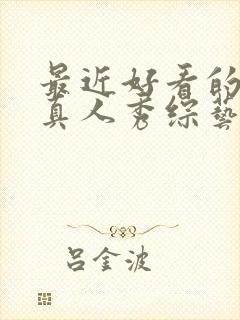 最近好看的
真人秀综藝
吕金波